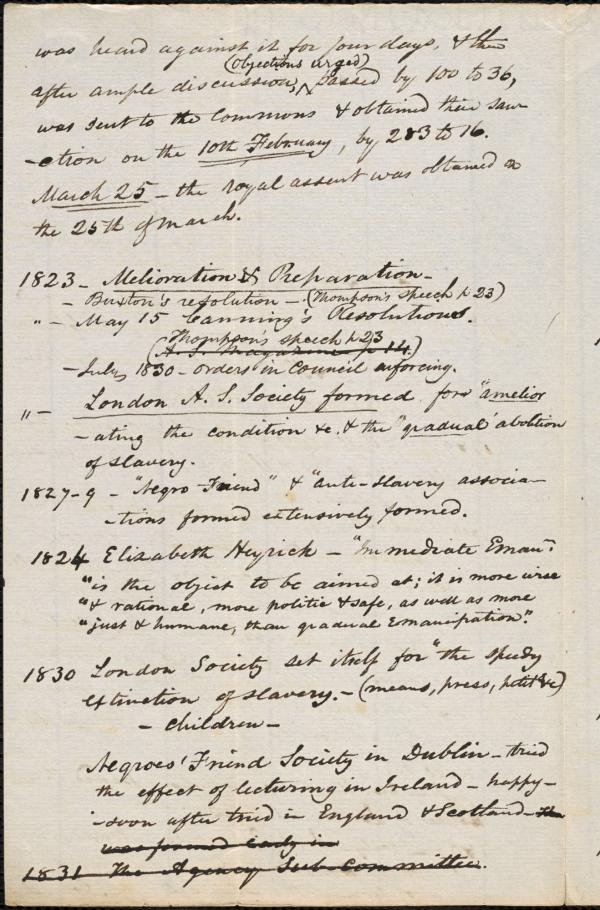 was heard against it for four days, & then
(objections urged)
after ample discussion, passed by 100 to 36,
was sent to the Commons & obtained their san-
-ction on the 10th February, by 283 to 16.
March 25 - the royal assent was obtained on
the 25th of March.
1823 - Melioration & Preparation -
- Buxton's resolution - (Thompson's speech p 23)
" - May 15 Canning's Resolutions.
Thompson's speech p 23
(A. S. Magazine p 14.)
- July 1830 - orders in Council enforcing.
" - London A. S. Society formed for "amelior
-ating the condition &c. & the "gradual" abolition
of slavery.
1827-9 - "Negro Friend" & "anti-slavery associa-
-tions formed extensively formed.
1824 Elizabeth Heyrick - "Immediate Eman.n
"is the object to be aimed at; it is more wise
"& rational, more politic & safe, as well as more
"just & humane, than gradual Emancipation".
1830 London Society set itself for "the speedy
extinction of slavery. - (means, press, petit &c)
- Children -
Negroes' Friend Society in Dublin - tried
the effect of lecturing in Ireland - happy -
-soon after tried in England & Scotland - the
was formed early in
1831 The Agency Sub-Committee.